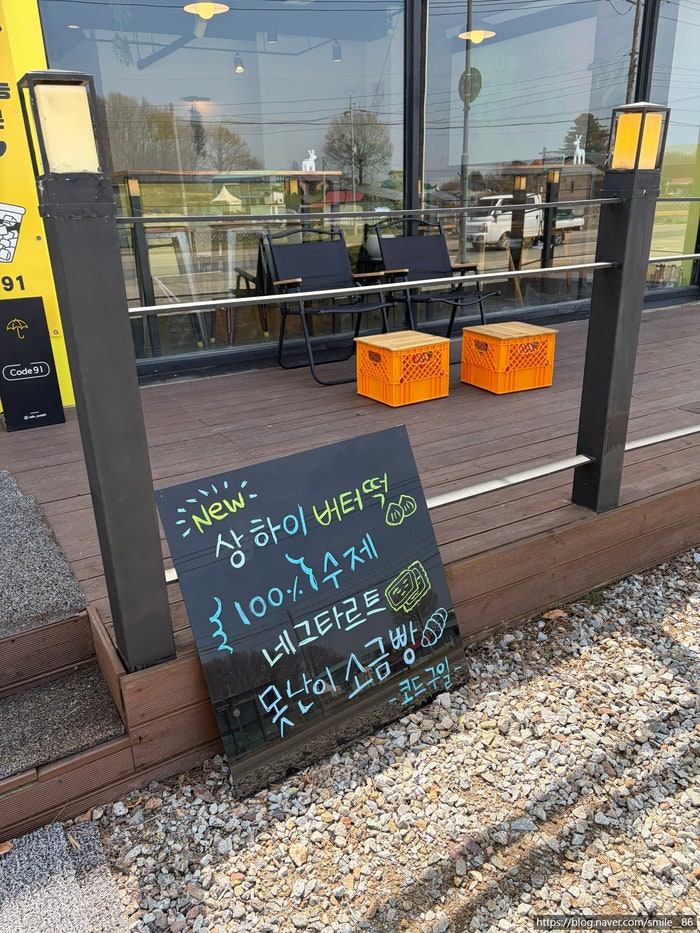 91
Code91
New
상하이 버터떡
100% 수제
네그타르트
못난이 소금빵
-코드구일-
https://blog.naver.com/smile_86